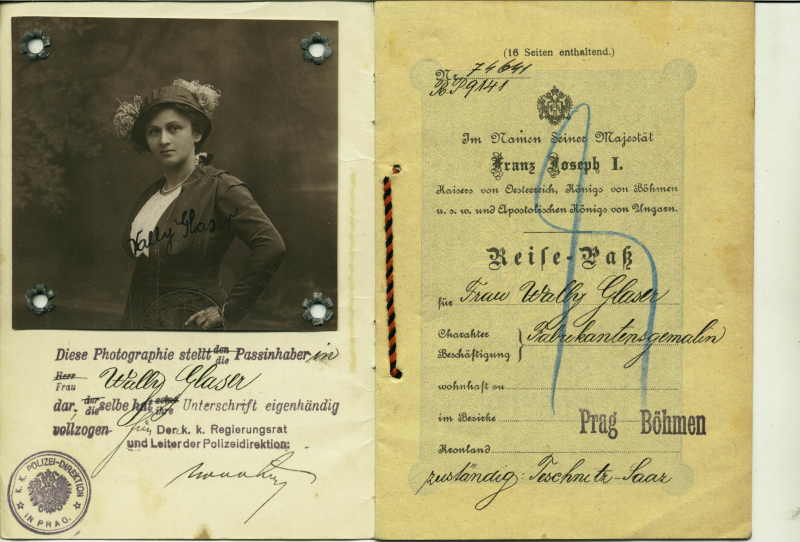 Wally Glaser
Diese Photographie stellt den die Passinhaber in
Herr
Frau Wally Glaser
dar, der die selbe hat seine ihre Unterschrift eigenhändig
vollzogen
für Der k. k. Regierungsrat
und Leiter der Polizeidirektion:
K. K. POLIZEI-DIREKTION
IN PRAG.
(16 Seiten enthaltend.)
Nr. 74641
R. P. 9141
Im Namen Seiner Majestät
Franz Joseph I.
Kaisers von Oesterreich, Königs von Böhmen
u. s. w. und Apostolischen Königs von Ungarn.
Reise-Paß
für Frau Wally Glaser
Charakter
Beschäftigung
Fabrikantensgemalin
wohnhaft zu
im Bezirke Prag Böhmen
Kronland
zuständig: Teschnitz-Saaz